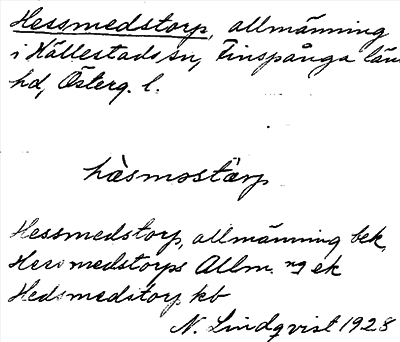 Hessmedstorp, allmänning
i Hällestads sn, Finspånga län
hd, Österg. l.
hàsmostàrp
Hessmedstorp, allmänning bek,
Hessmedstorps Allm. ng ek
Hedsmedstorp kb
N. Lindqvist 1928